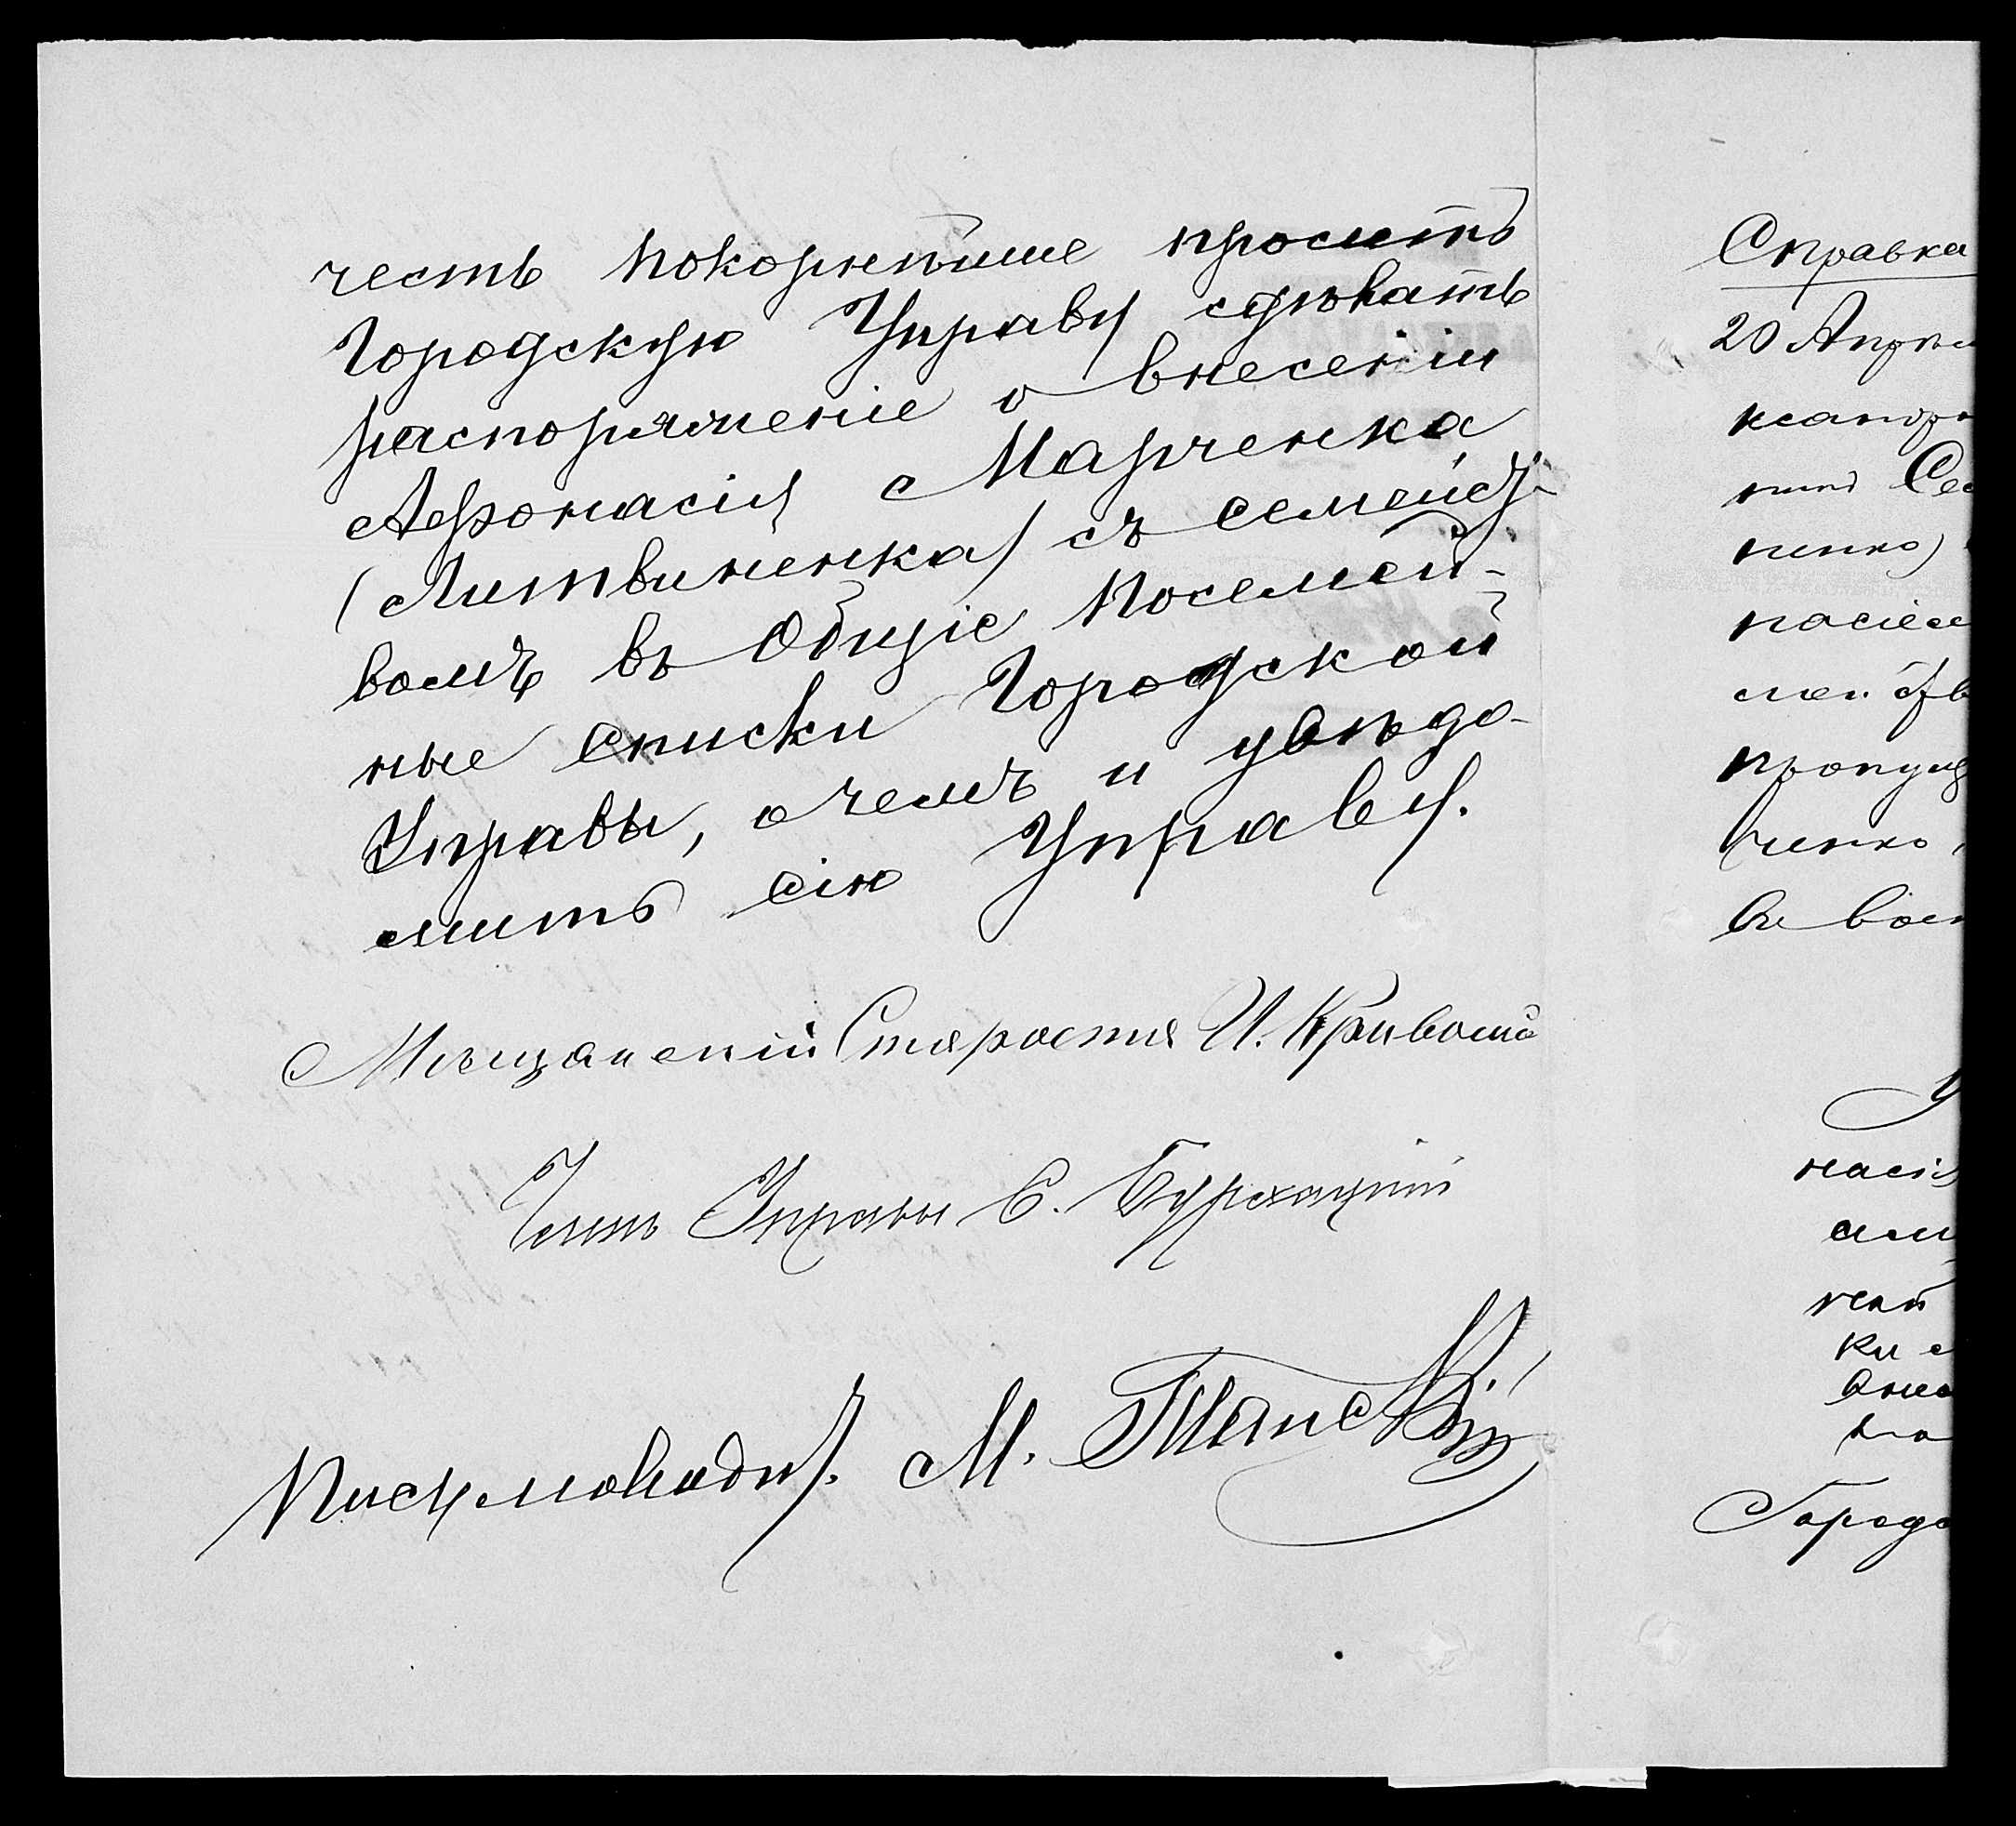 честь покорнѣйше просить
Городскую Управу сдѣлать
распоряженіе о внесеніи
Афонасія Марченка
(Литвиненка) съ семейст-
вомъ въ Общіе посемей-
ные списки Городской
Управы, о чемъ и увѣдо-
мить сію Управу.
Мѣщанскій Староста И.
Членъ Управы С.
Письмовод. М.
Справка
20 Апрѣл
Се
ненко)
насіем
мейств
пропущ
ченко
насі
ки с
внес
Городс